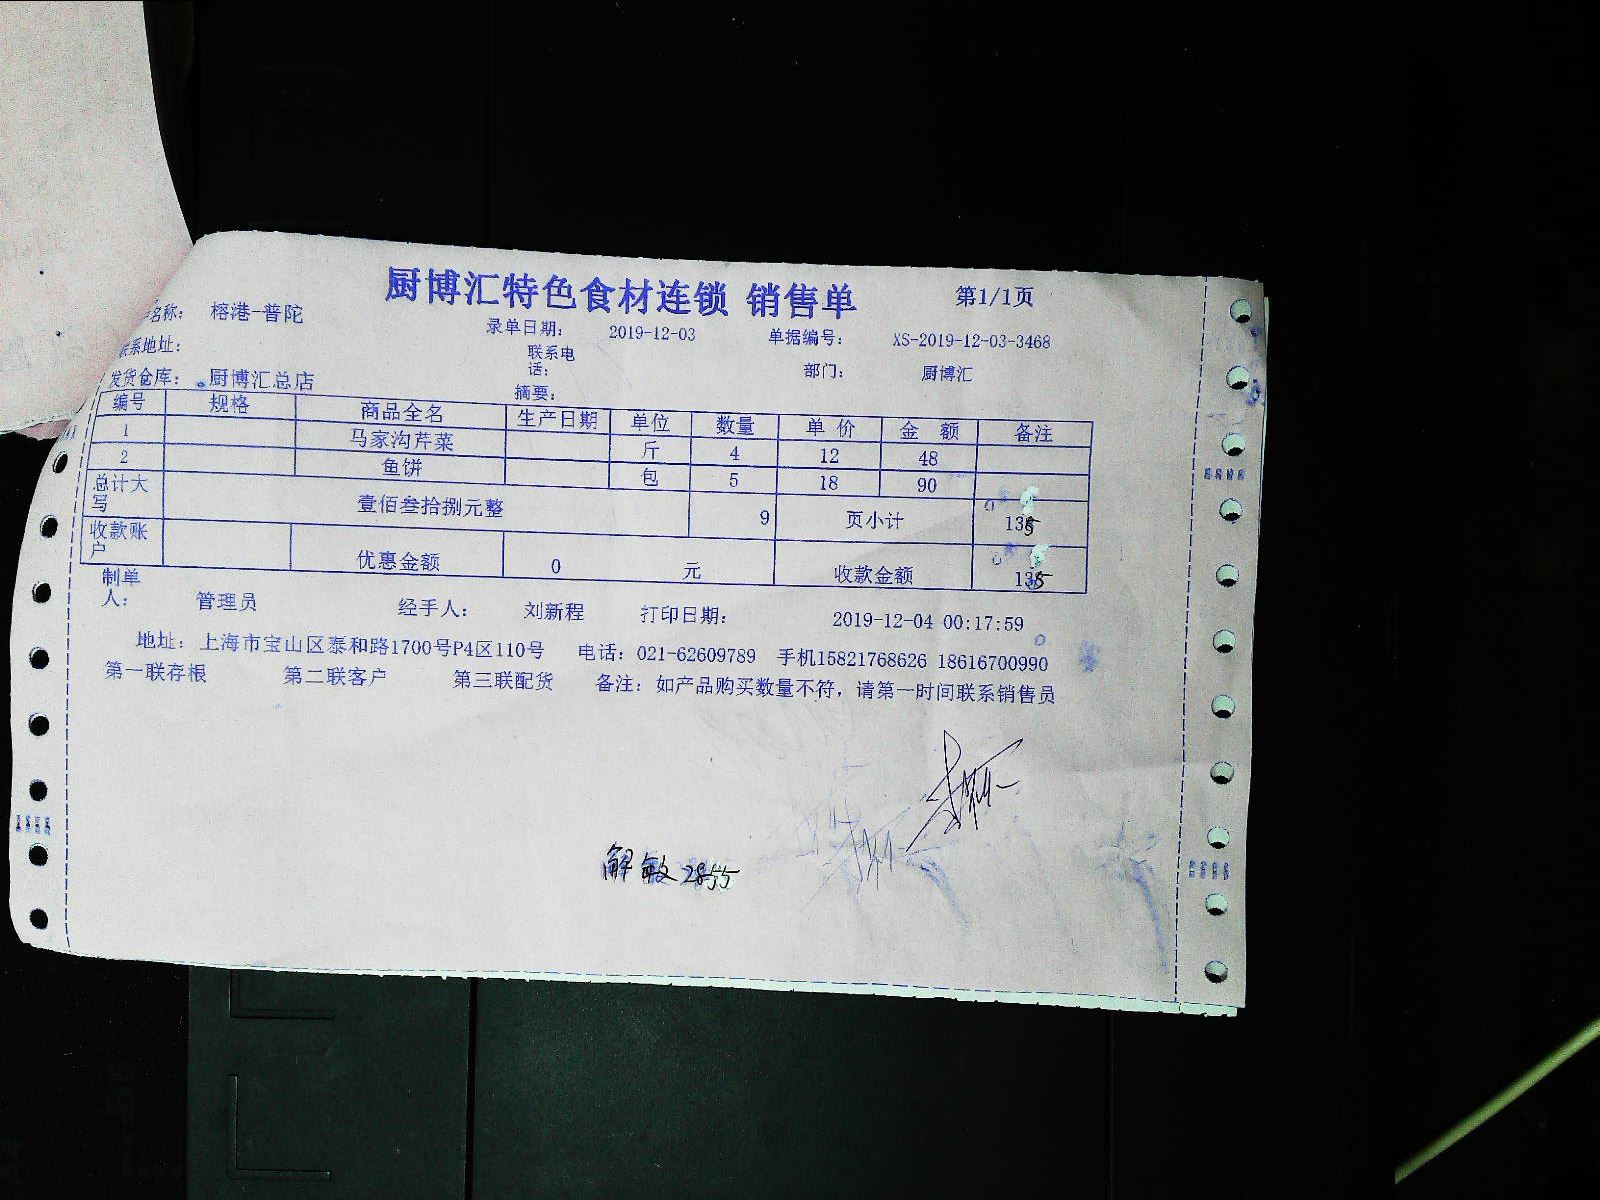 厨博汇特色食材连锁 销售单 第1/1页
名称： 榕港-普陀 录单日期： 2019-12-03 单据编号： XS-2019-12-03-3468
联系地址： 联系电话： 部门： 厨博汇
发货仓库： 厨博汇总店 摘要：
编号 规格 商品全名 生产日期 单位 数量 单价 金额 备注
1 马家沟芹菜 斤 4 12 48
2 鱼饼 包 5 18 90
总计大写 壹佰叁拾捌元整 9 页小计 135
收款账户 优惠金额 0 元 收款金额 135
制单人： 管理员 经手人： 刘新程 打印日期： 2019-12-04 00:17:59
地址：上海市宝山区泰和路1700号P4区110号 电话：021-62609789 手机15821768626 18616700990
第一联存根 第二联客户 第三联配货 备注：如产品购买数量不符，请第一时间联系销售员
解敏2855